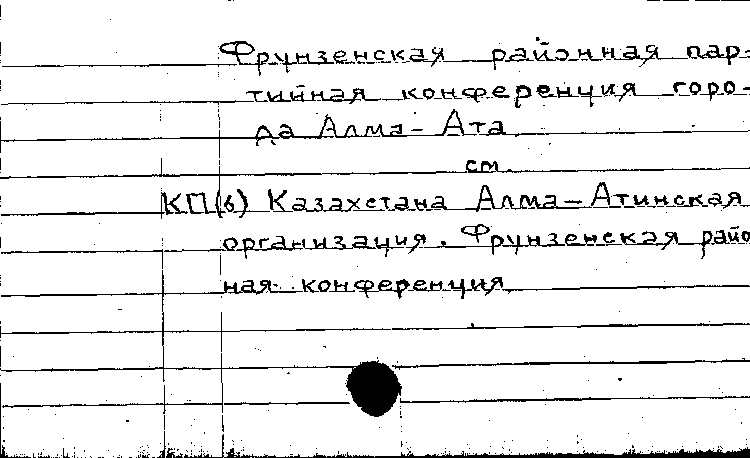 Фрунзенская районная пар-
тийная конференция горо-
да Алма-Ата
см.
КП(б) Казахстана Алма-Атинская
организация. Фрунзенская райо
ная конференция.